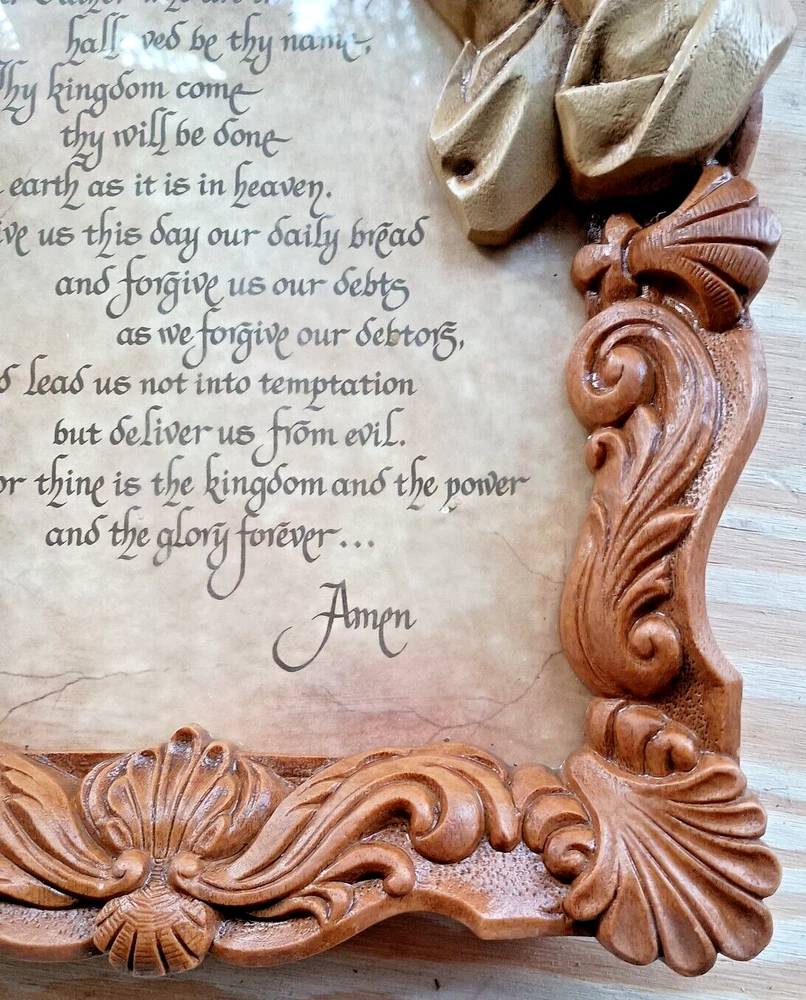 hallowed be thy name,
Thy kingdom come
thy will be done
earth as it is in heaven.
us this day our daily bread
and forgive us our debts
as we forgive our debtors,
lead us not into temptation
but deliver us from evil.
thine is the kingdom and the power
and the glory forever...
Amen